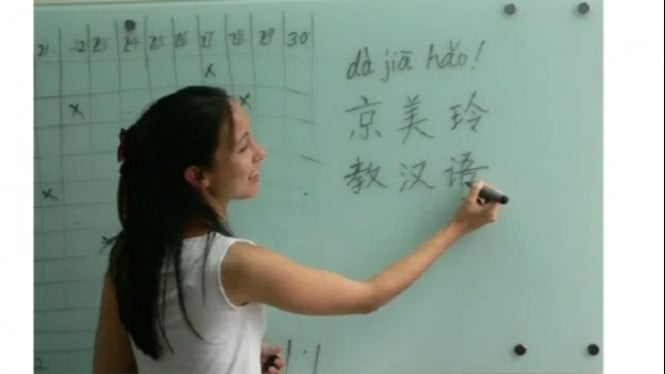 21 22 23 24 25 26 27 28 29 30
dà jiā hǎo!
x
x x
京美玲
教汉语
x
x